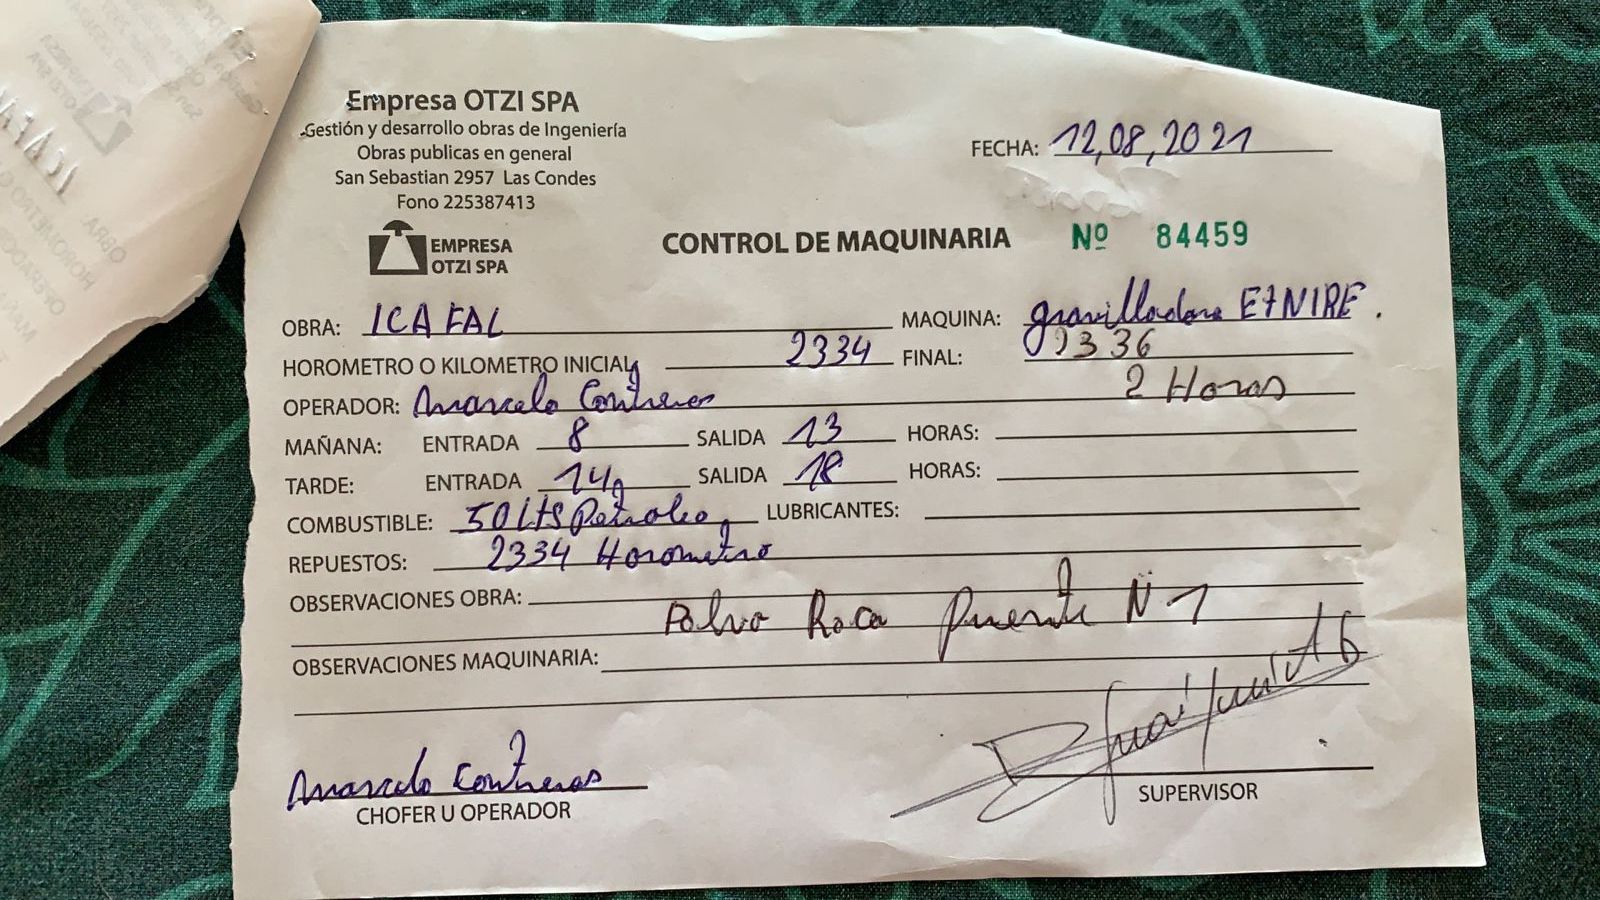 Empresa OTZI SPA
Gestión y desarrollo obras de Ingeniería
Obras publicas en general
San Sebastian 2957 Las Condes
Fono 225387413
EMPRESA
OTZI SPA
FECHA: 12,08,2021
CONTROL DE MAQUINARIA Nº 84459
OBRA: ICAFAL MAQUINA: gravilladora ETNIRE.
HOROMETRO O KILOMETRO INICIAL 2334 FINAL: 2336
2 Horas
OPERADOR: Marcelo Contreras
MAÑANA: ENTRADA 8 SALIDA 13 HORAS:
TARDE: ENTRADA 14 SALIDA 18 HORAS:
COMBUSTIBLE: 50 Lts Petroleo, LUBRICANTES:
REPUESTOS: 2334 Horometro
OBSERVACIONES OBRA:
Polvo Roca Puente N 1
OBSERVACIONES MAQUINARIA:
Marcelo Contreras
CHOFER U OPERADOR
SUPERVISOR